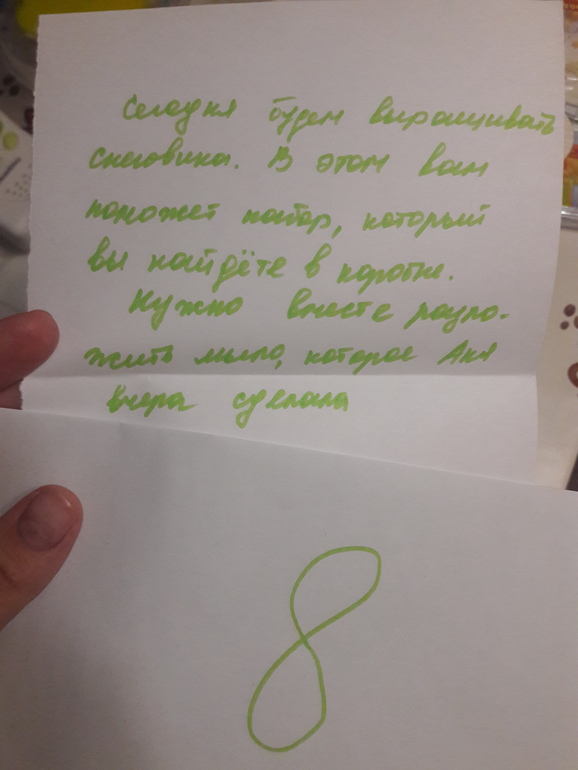 Сегодня будем выращивать
снеговика. В этом вам
поможет набор, который
вы найдёте в коробке.
Нужно вместе разло-
жить мыло, которое Аня
вчера сделала
8